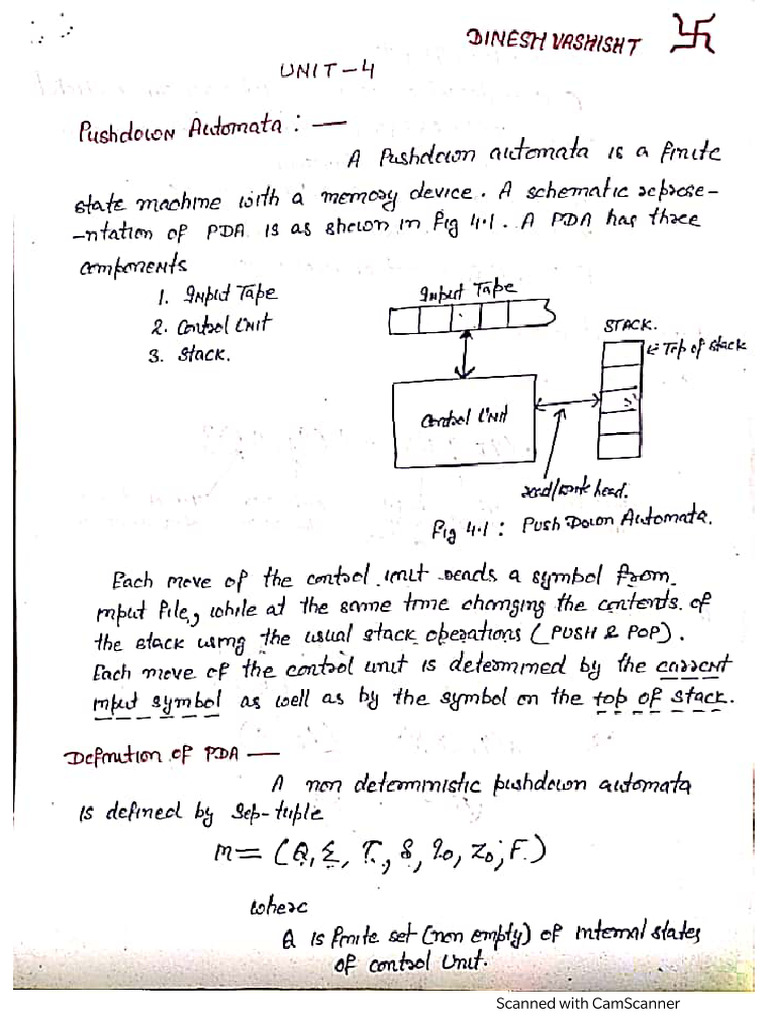 DINESH VASHISHT 卐
UNIT-4
Pushdown Automata : —
A Pushdown automata is a finite
state machine with a memory device. A schematic represe-
-ntation of PDA is as shown in Fig 4.1. A PDA has three
components
1. Input Tape
2. Control Unit
3. Stack.
Input Tape
STACK.
Top of stack
Control Unit
read/write head.
Fig 4.1 : Push Down Automata.
Each move of the control unit reads a symbol from
input file, while at the same time changing the contents of
the stack using the usual stack operations (PUSH & POP).
Each move of the control unit is determined by the current
input symbol as well as by the symbol on the top of stack.
Definition of PDA —
A non deterministic pushdown automata
is defined by Sep-tuple
M = (Q, Σ, Γ, δ, q0, z0, F)
where
Q is finite set (non empty) of internal states
of control Unit.
Scanned with CamScanner